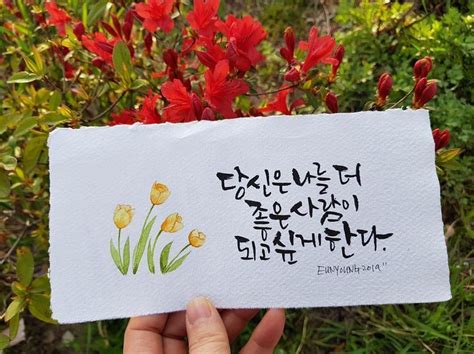 당신은 나를 더
좋은 사람이
되고 싶게 한다.
EUNYOUNG 2019"